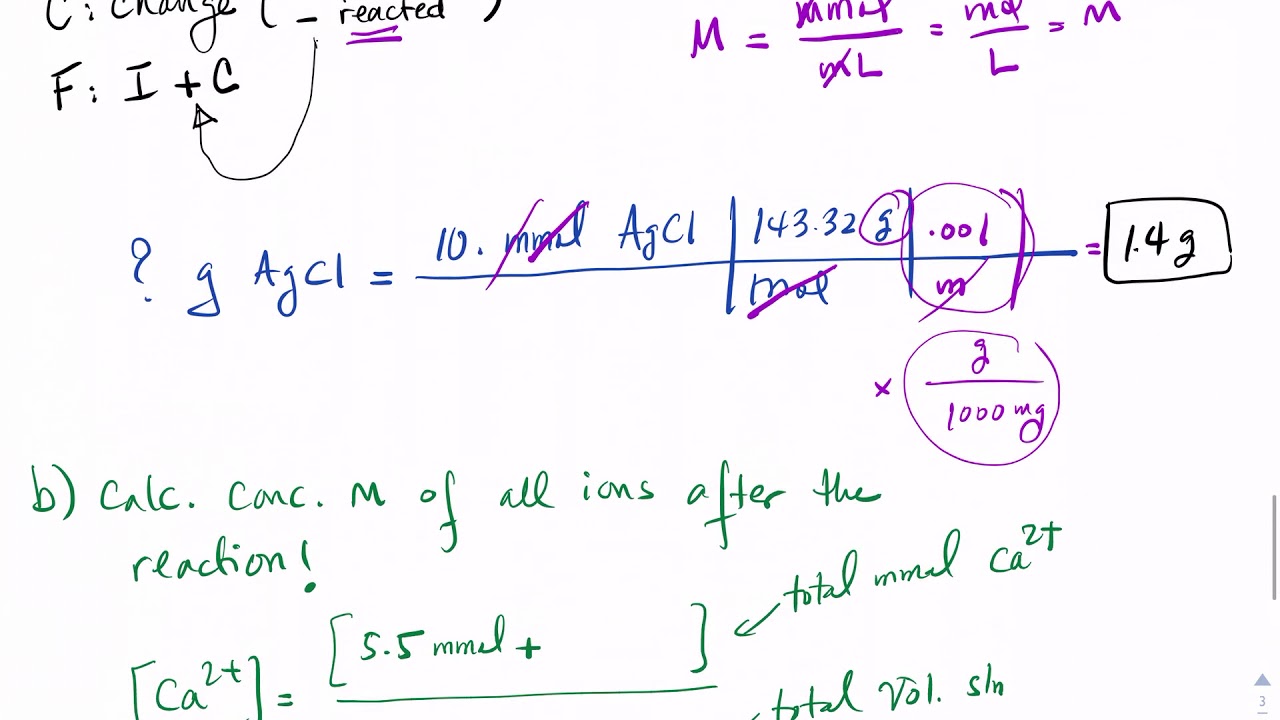 C: Change ( – reacted )
F: I + C
M = mmol / mL = mol / L = M
? g AgCl = 10. mmol AgCl | 143.32 g | .001 = 1.4 g
mol | m
× g / 1000 mg
b) Calc. Conc. M of all ions after the
reaction!
total mmol Ca²⁺
[5.5 mmol + ]
[Ca²⁺] =
total Vol. sln
3